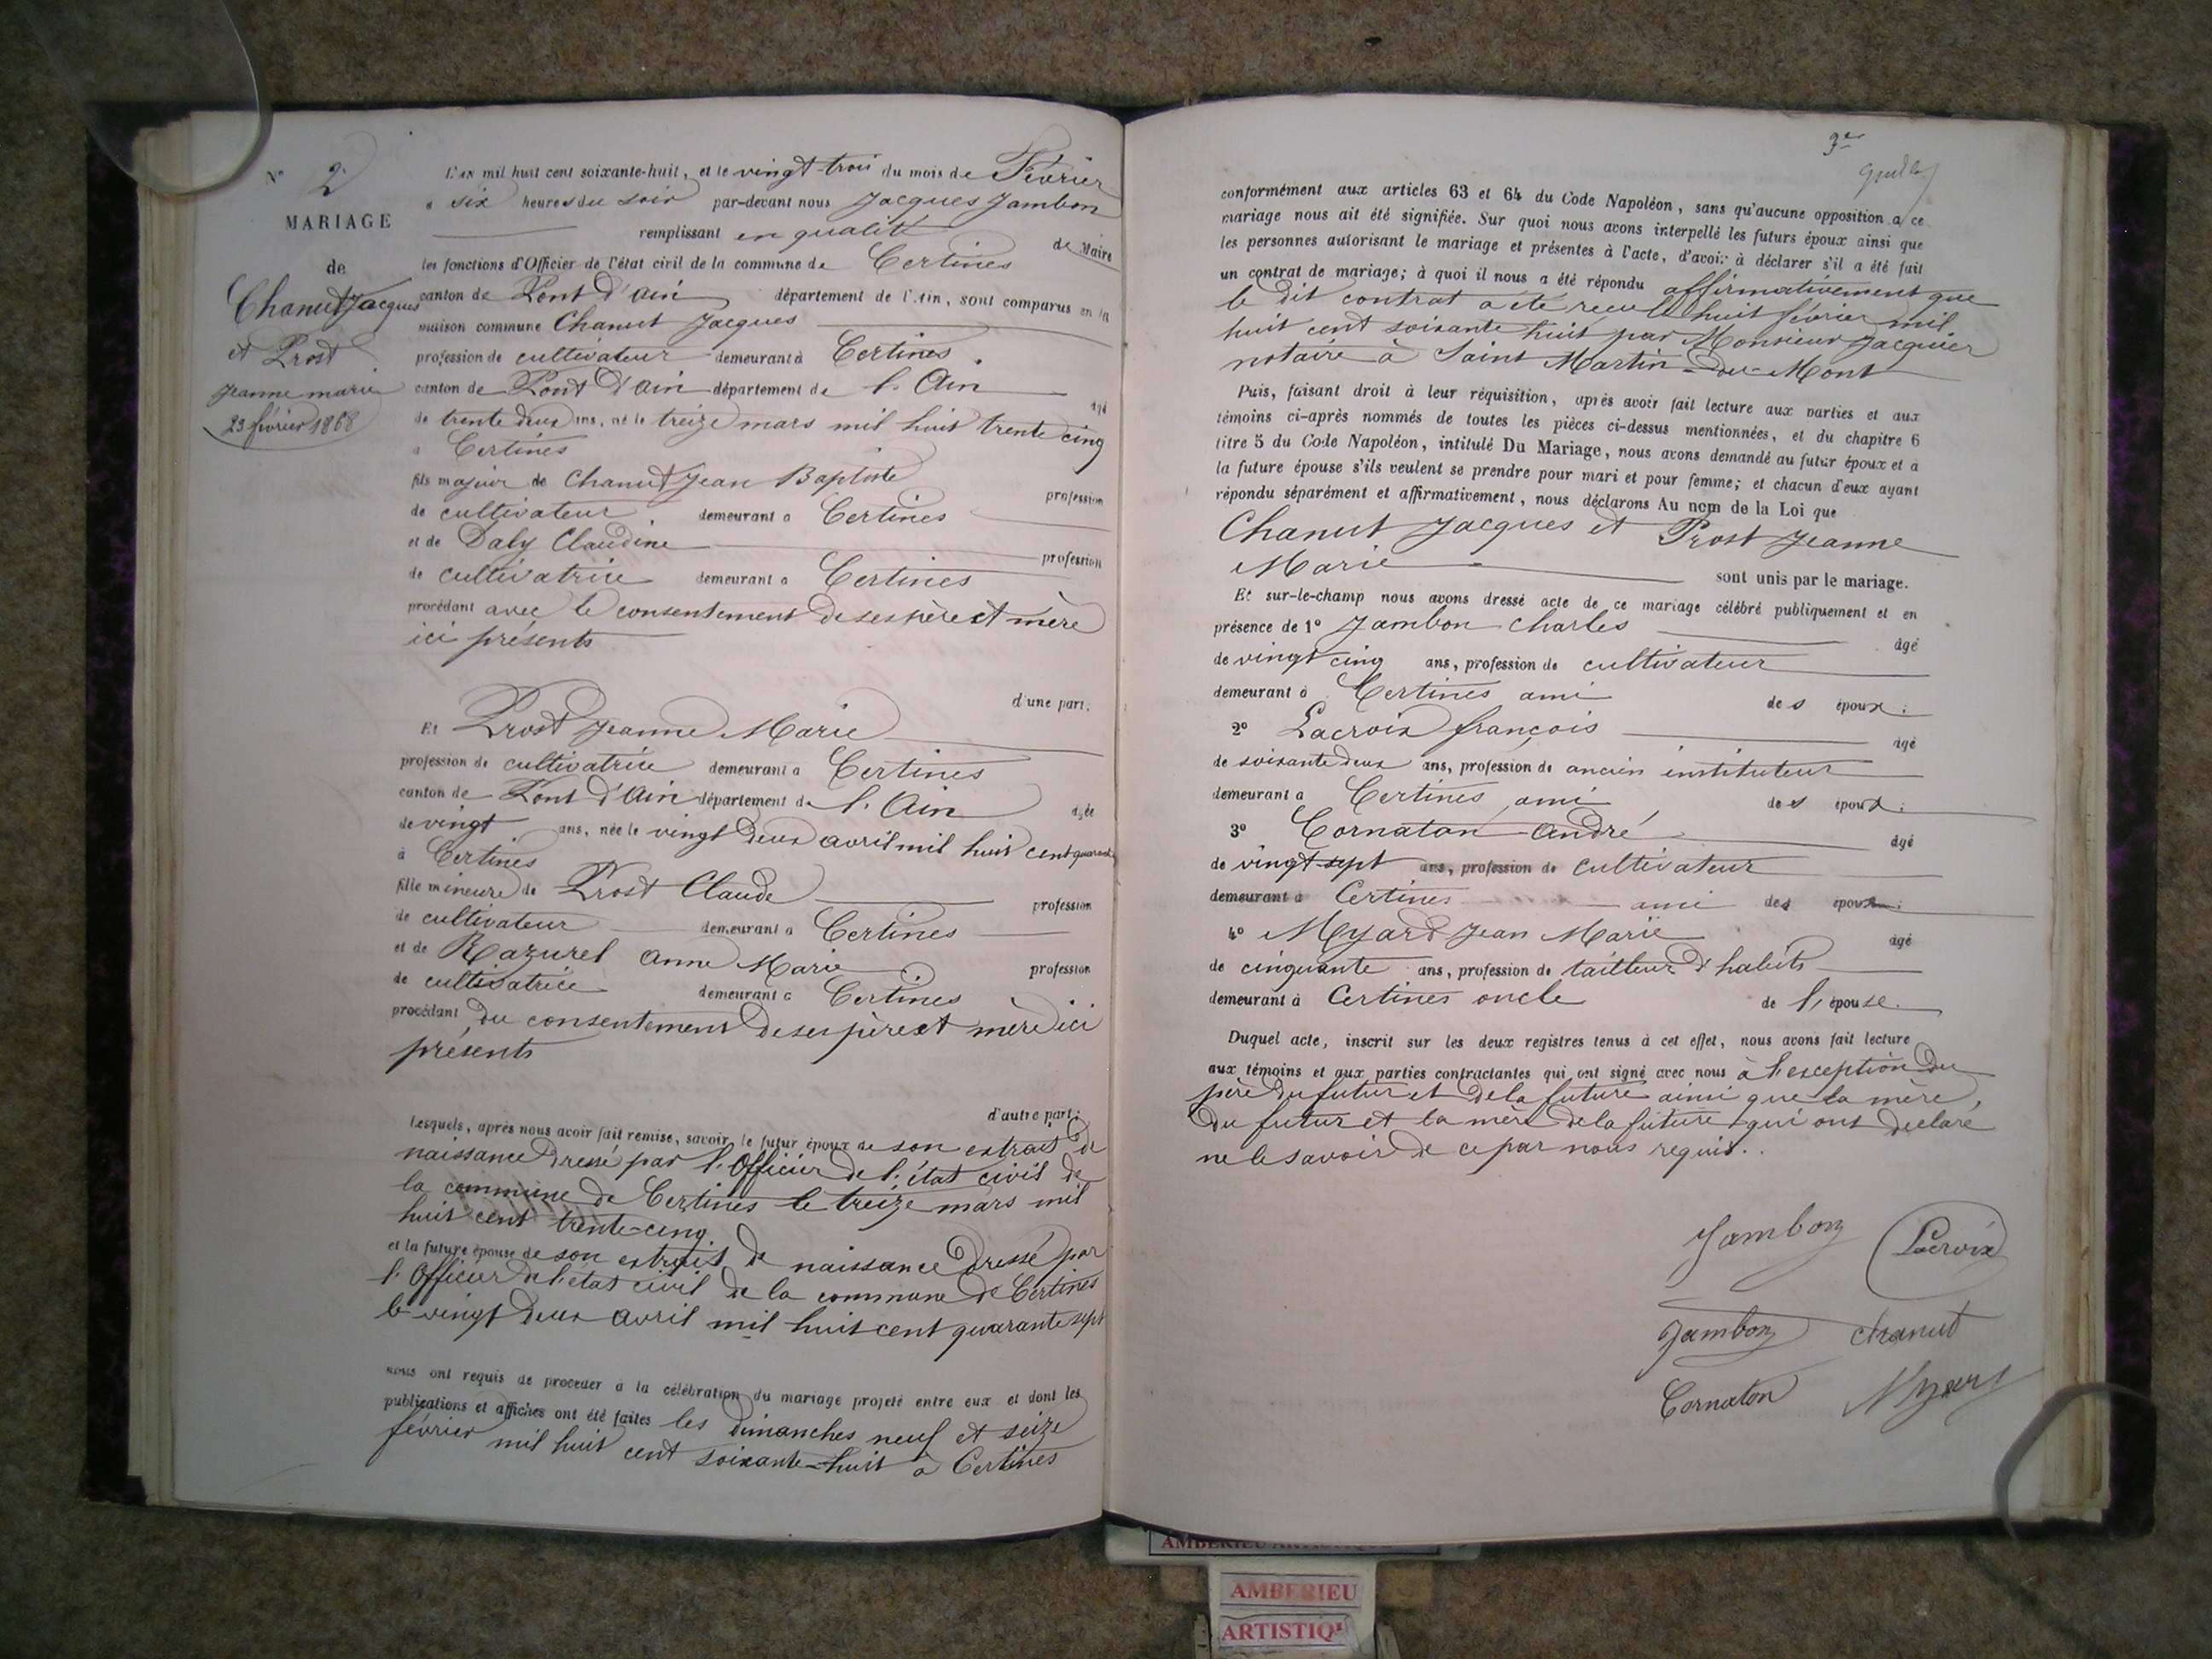 N° 2
MARIAGE
de
Chanut Jacques
et Prost
Jeanne marie
23 février 1868
L'an mil huit cent soixante-huit, et le vingt-trois du mois de Février
a six heures du soir par-devant nous Jacques Jambon
remplissant en qualité de Maire
les fonctions d'Officier de l'état civil de la commune de Certines
canton de Pont d'ain département de l'Ain, sont comparus en la
maison commune Chanut Jacques
profession de cultivateur demeurant à Certines.
canton de Pont d'ain département de l'Ain âgé
de trente deux ans, né le treize mars mil huit trente cinq
a Certines
fils majeur de Chanut Jean Baptiste profession
de cultivateur demeurant a Certines
et de Daly Claudine profession
de cultivatrice demeurant a Certines
procédant avec le consentement de ses père et mère
ici présents
d'une part.
Et Prost Jeanne Marie
profession de cultivatrice demeurant a Certines
canton de Pont d'Ain département de l'Ain agée
de vingt ans, née le vingt deux avril mil huit cent quarante
à Certines
fille mineure de Prost Claude profession
de cultivateur demeurant a Certines
et de Razurel Anne Marie profession
de cultivatrice demeurant a Certines
procédant du consentement de ses père et mère ici
présents
d'autre part;
Lesquels, après nous avoir fait remise, savoir le futur époux de son extrait de
naissance dressé par l'Officier de l'état civil de
la commune de Certines le treize mars mil
huit cent trente-cinq
et la future épouse de son extrait de naissance dressé par
l'Officier de l'état civil de la commune de Certines
le vingt deux avril mil huit cent quarante sept
nous ont requis de proceder à la célébration du mariage projeté entre eux et dont les
publications et affiches ont été faites les dimanches neuf et seize
février mil huit cent soixante-huit à Certines
3e
conformément aux articles 63 et 64 du Code Napoléon, sans qu'aucune opposition a ce
mariage nous ait été signifiée. Sur quoi nous avons interpellé les futurs époux ainsi que
les personnes autorisant le mariage et présentes à l'acte, d'avoir à déclarer s'il a été fait
un contrat de mariage; à quoi il nous a été répondu affirmativement que
le dit contrat a été recu le huit février mil
huit cent soixante huit par Monsieur Jacquier
notaire à Saint Martin-du-Mont
Puis, faisant droit à leur réquisition, après avoir fait lecture aux parties et aux
témoins ci-après nommés de toutes les pièces ci-dessus mentionnées, et du chapitre 6
titre 5 du Code Napoléon, intitulé Du Mariage, nous avons demandé au futur époux et à
la future épouse s'ils veulent se prendre pour mari et pour femme; et chacun d'eux ayant
répondu séparément et affirmativement, nous déclarons Au nom de la Loi que
Chanut Jacques et Prost Jeanne
Marie sont unis par le mariage.
Et sur-le-champ nous avons dressé acte de ce mariage célébré publiquement et en
présence de 1° Jambon Charles âgé
de vingt cinq ans, profession de cultivateur
demeurant à Certines ami des époux;
2° Lacroix françois âgé
de soixante deux ans, profession de ancien instituteur
demeurant a Certines ami des époux;
3° Cornaton André âgé
de vingt-sept ans, profession de cultivateur
demeurant à Certines ami des époux
4° Myard Jean Marie âgé
de cinquante ans, profession de tailleur d'habits
demeurant à Certines oncle de l'épouse.
Duquel acte, inscrit sur les deux registres tenus à cet effet, nous avons fait lecture
aux témoins et aux parties contractantes qui ont signé avec nous à l'exception du
père du futur et de la future ainsi que la mère,
du futur et la mère de la future qui ont déclaré
ne le savoir de ce par nous requis.
Jambon Lacroix
Jambon Chanut
Cornaton Myard
AMBERIEU
ARTISTIQ